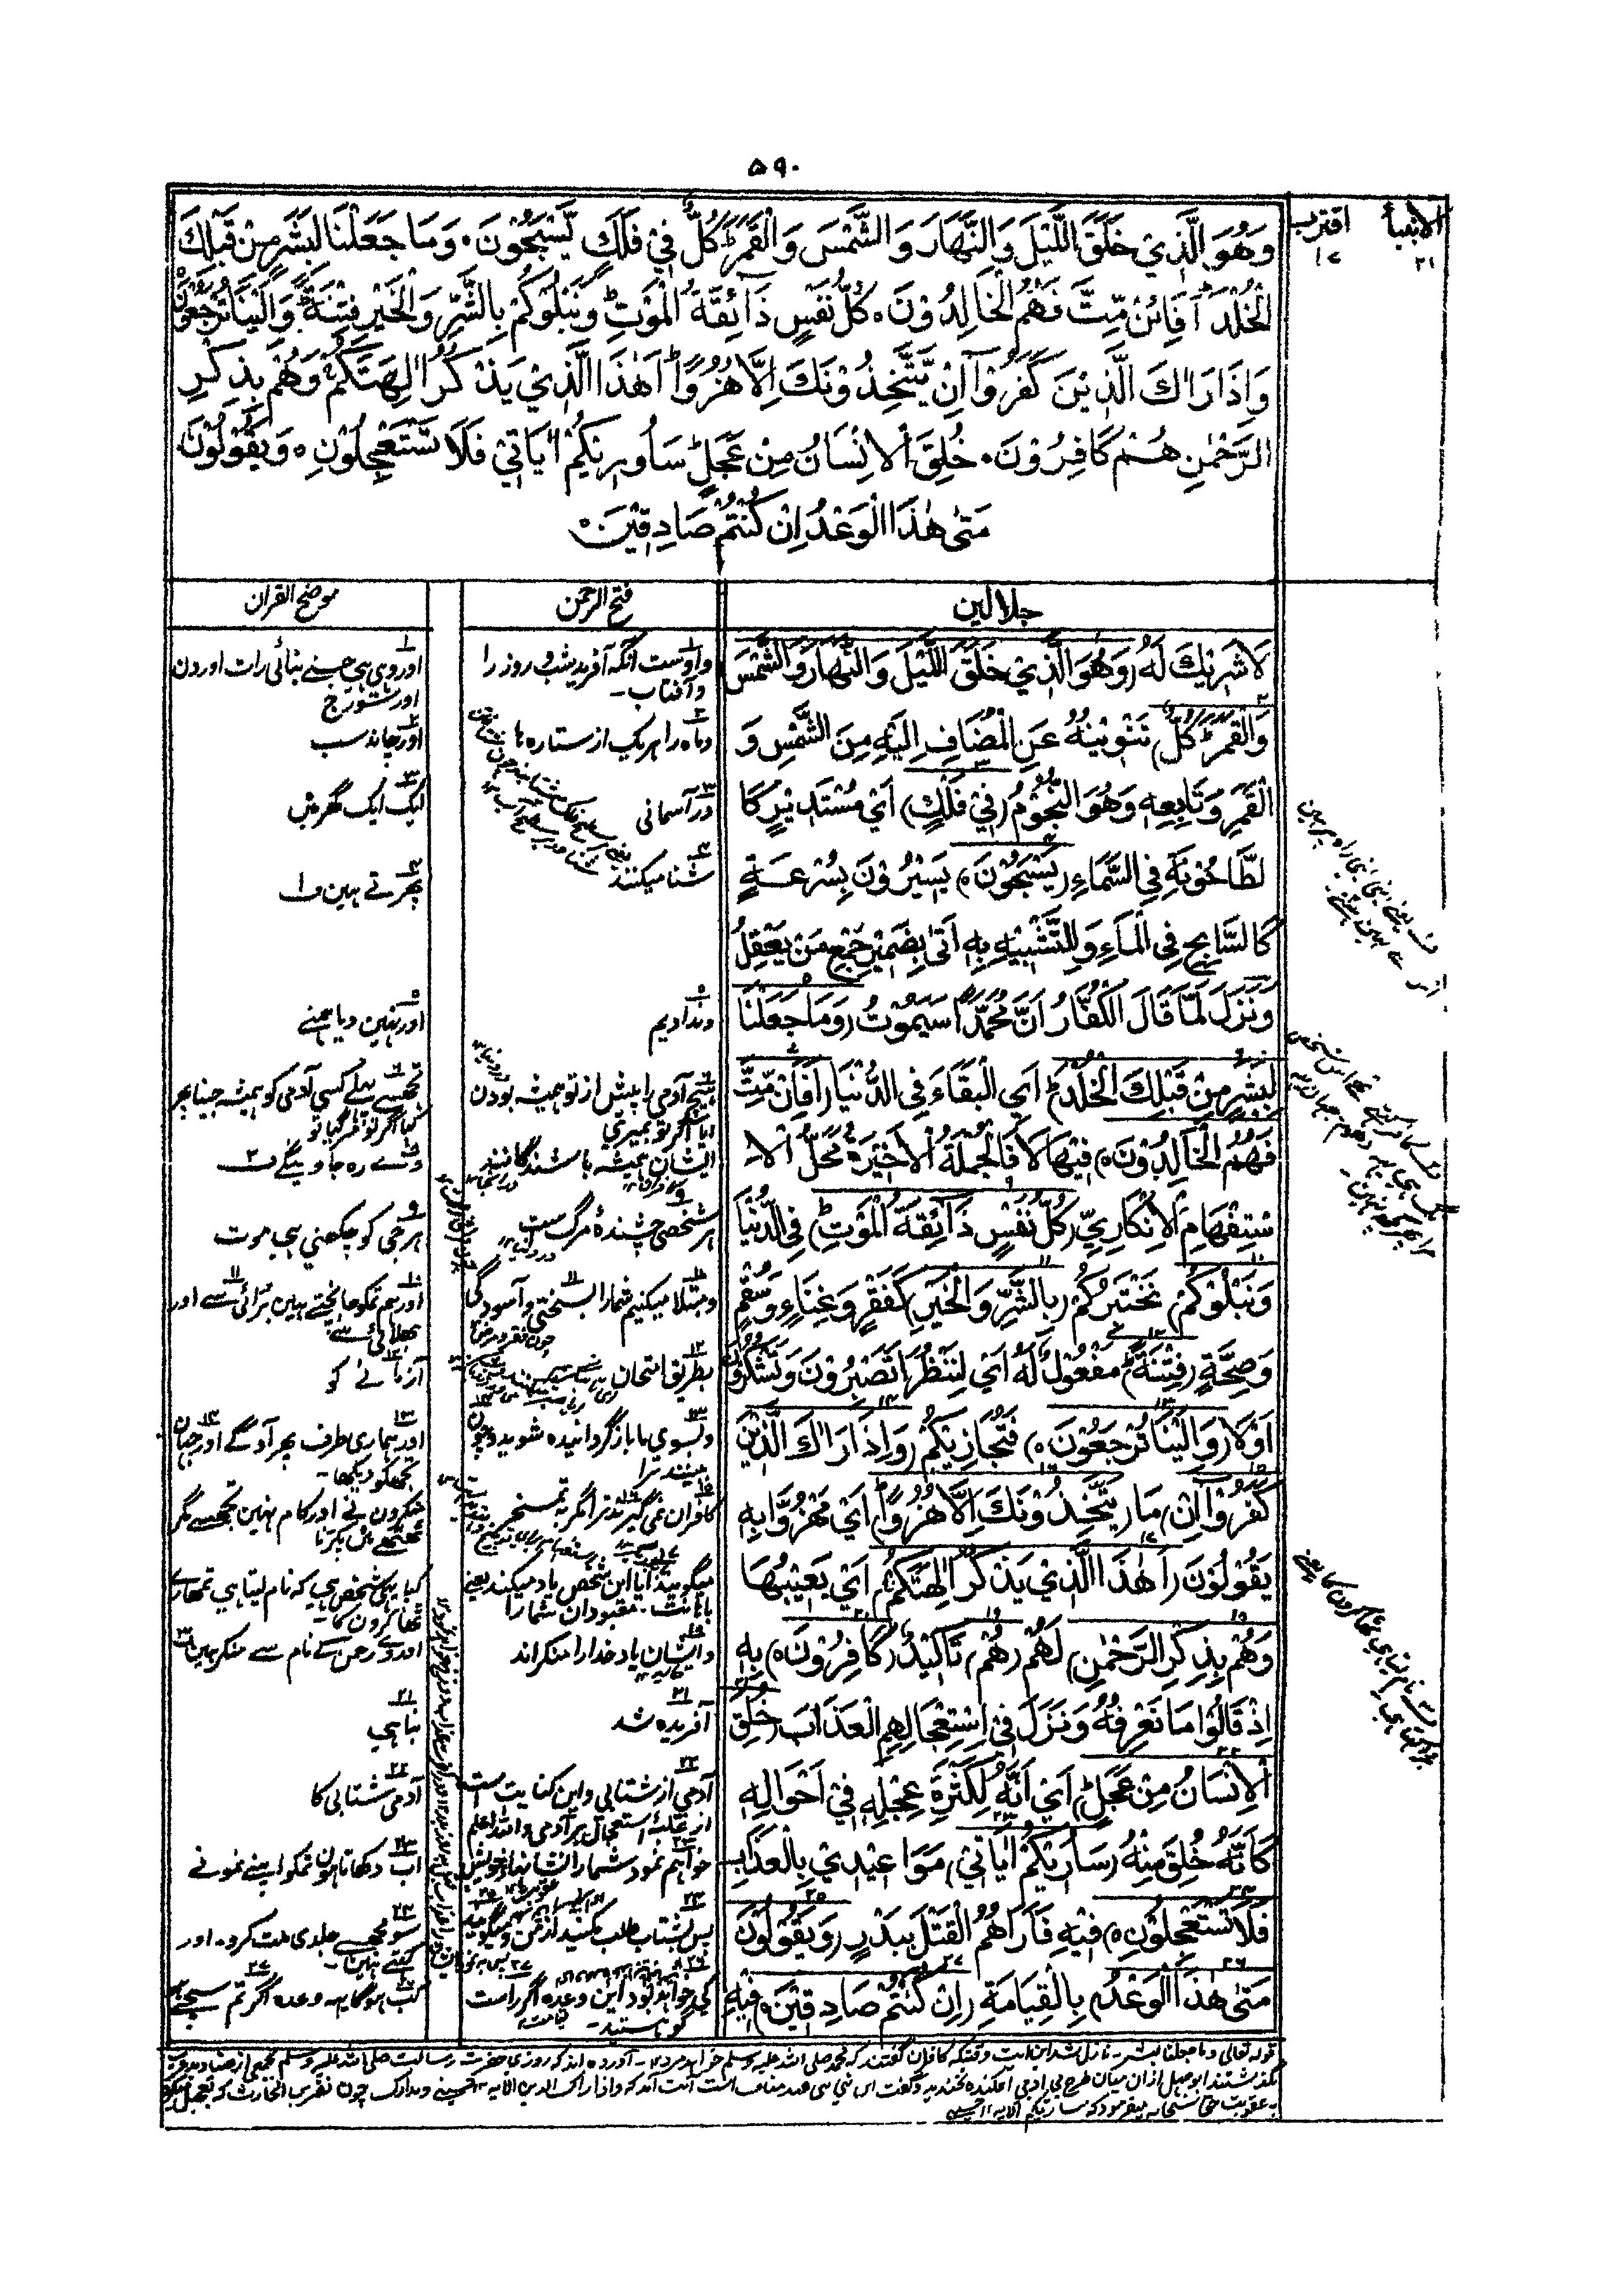 ۵۹۰
الانبیأ ۲۱
اقترب ۱۷
وَهُوَ الَّذِيْ خَلَقَ اللَّيْلَ وَالنَّهَارَ وَالشَّمْسَ وَالْقَمَرَ كُلٌّ فِيْ فَلَكٍ يَّسْبَحُوْنَ وَمَا جَعَلْنَا لِبَشَرٍ مِنْ قَبْلِكَ
الْخُلْدَ اَفَائِنْ مِّتَّ فَهُمُ الْخَالِدُوْنَ كُلُّ نَفْسٍ ذَآئِقَةُ الْمَوْتِ وَنَبْلُوْكُمْ بِالشَّرِّ وَالْخَيْرِ فِتْنَةً وَاِلَيْنَا تُرْجَعُوْنَ
وَاِذَا رَاٰكَ الَّذِيْنَ كَفَرُوْآ اِنْ يَّتَّخِذُوْنَكَ اِلَّا هُزُوًا اَهٰذَا الَّذِيْ يَذْكُرُ اٰلِهَتَكُمْ وَهُمْ بِذِكْرِ
الرَّحْمٰنِ هُمْ كَافِرُوْنَ خُلِقَ الْاِنْسَانُ مِنْ عَجَلٍ سَاُورِيْكُمْ اٰيَاتِيْ فَلَا تَسْتَعْجِلُوْنِ وَيَقُوْلُوْنَ
مَتٰى هٰذَا الْوَعْدُ اِنْ كُنْتُمْ صَادِقِيْنَ
جلالين
لَا شَرِيْكَ لَهُ (وَهُوَ الَّذِيْ خَلَقَ اللَّيْلَ وَالنَّهَارَ وَالشَّمْسَ
وَالْقَمَرَ كُلٌّ) تَنْوِيْنُهُ عَنِ الْمُضَافِ اِلَيْهِ مِنَ الشَّمْسِ وَ
الْقَمَرِ وَتَابِعِهِ وَهُوَ النُّجُوْمُ (فِيْ فَلَكٍ) اَيْ مُسْتَدِيْرٍ كَا
لطَّاحُوْنَةِ فِي السَّمَاءِ (يَسْبَحُوْنَ) يَسِيْرُوْنَ بِسُرْعَةٍ
كَالسَّابِحِ فِي الْمَاءِ وَلِلتَّشْبِيْهِ بِهِ اَتٰى بِضَمِيْرِ جَمْعِ مَنْ يَعْقِلُ
وَنَزَلَ لَمَّا قَالَ الْكُفَّارُ اَنَّ مُحَمَّدًا سَيَمُوْتُ (وَمَا جَعَلْنَا
لِبَشَرٍ مِنْ قَبْلِكَ الْخُلْدَ) اَيِ الْبَقَاءَ فِي الدُّنْيَا (اَفَاِنْ مِّتَّ
فَهُمُ الْخَالِدُوْنَ) فِيْهَا لَا فَالْجُمْلَةُ الْاَخِيْرَةُ مَحَلُّ الْا
سْتِفْهَامِ الْاِنْكَارِيِّ (كُلُّ نَفْسٍ ذَآئِقَةُ الْمَوْتِ) فِي الدُّنْيَا
وَنَبْلُوْكُمْ نَخْتَبِرُكُمْ (بِالشَّرِّ وَالْخَيْرِ) كَفَقْرٍ وَغِنَاءٍ وَسُقْمٍ
وَصِحَّةٍ (فِتْنَةً) مَفْعُوْلٌ لَهُ اَيْ لِنَنْظُرَ اَتَصْبِرُوْنَ وَتَشْكُرُوْنَ
اَوْ لَا (وَاِلَيْنَا تُرْجَعُوْنَ) فَنُجَازِيْكُمْ (وَاِذَا رَاٰكَ الَّذِيْنَ
كَفَرُوْآ اِنْ) مَا (يَتَّخِذُوْنَكَ اِلَّا هُزُوًا) اَيْ مَهْزُوًّا بِهِ
يَقُوْلُوْنَ (اَهٰذَا الَّذِيْ يَذْكُرُ اٰلِهَتَكُمْ) اَيْ يَعِيْبُهَا
وَهُمْ بِذِكْرِ الرَّحْمٰنِ) لَهُمْ (هُمْ) تَاكِيْدٌ (كَافِرُوْنَ) بِهِ
اِذْ قَالُوْا مَا نَعْرِفُهُ وَنَزَلَ فِيْ اِسْتِعْجَالِهِمِ الْعَذَابَ (خُلِقَ
الْاِنْسَانُ مِنْ عَجَلٍ) اَيْ اَنَّهُ لِكَثْرَةِ عَجَلِهِ فِيْ اَحْوَالِهِ
كَاَنَّهُ خُلِقَ مِنْهُ (سَاُرِيْكُمْ اٰيَاتِيْ) مَوَاعِيْدِيْ بِالْعَذَابِ
فَلَا تَسْتَعْجِلُوْنِ) فِيْهِ فَاَرَاهُمُ الْقَتْلَ بِبَدْرٍ (وَيَقُوْلُوْنَ
مَتٰى هٰذَا الْوَعْدُ) بِالْقِيَامَةِ (اِنْ كُنْتُمْ صَادِقِيْنَ) فِيْهِ
فتح الرحمن
واوست آنکه آفرید شب و روز را
وآفتاب
وماه را هریک از ستاره ها
در آسمانی
شنا میکنند
وندادیم
هیچ آدمی را پیش از تو همیشه بودن
ایا اگر تو بمیری
ایشان همیشه باشندگانند
هر شخصی چشندهٔ مرگ ست
ومبتلا میکنیم شمارا بسختی و آسودگی
بطریق امتحان
وبسوی ما بازگردانیده شوید وچون
ببینند ترا
کافران نمی گیرند ترا مگر بتمسخر
میگویند آیا این شخص یاد میکند یعنی
باهانت معبودان شمارا
وایشان بیاد خدا را منکراند
آفریده شد
آدمی از شتابی واین کنایت است
از غلبهٔ استعجال بر آدمی والله اعلم
خواهم نمود شمارا نشانهای خویش
پس بشتاب طلب مکنید از من ومیگویند
کی خواهد بود این وعده اگر راست
گو هستید
موضح القران
اور وہی ہی جسنے بنائی رات اور دن
اور سورج
اور چاند سب
ایک ایک گھر مین
پھرتے ہین
اور نہین دیا ہمنے
تجھسے پہلے کسی آدمی کو ہمیشہ جینا پھر
کیا اگر تو مر گیا تو
وے رہ جاوینگے
ہر جی کو چکھنی ہی موت
اور ہم تمکو جانچتے ہین بُرائی سے اور
بھلائی سے
آزمانے کو
اور ہماری طرف پھر آؤگے اور جہان
تجھکو دیکھا
منکرون نے اور کام نہین تجھسے مگر
ٹھٹھے مین پکڑنا
کیا یہی شخص ہی کہ نام لیتا ہی تمھارے
ٹھاکرون کا
اور وے رحمن کے نام سے منکر ہین
بنا ہی
آدمی شتابی کا
اب دکھاتا ہون تمکو اپنے نمونے
سو مجھسے جلدی مت کرو اور
کہتے ہین
کب ہوگا یہ وعدہ اگر تم سچے ہو
قوله تعالی وما جعلنا لبشر نازل شد این آیت وقتیکه کافران گفتند که محمد صلی الله علیه وسلم خواهد مرد